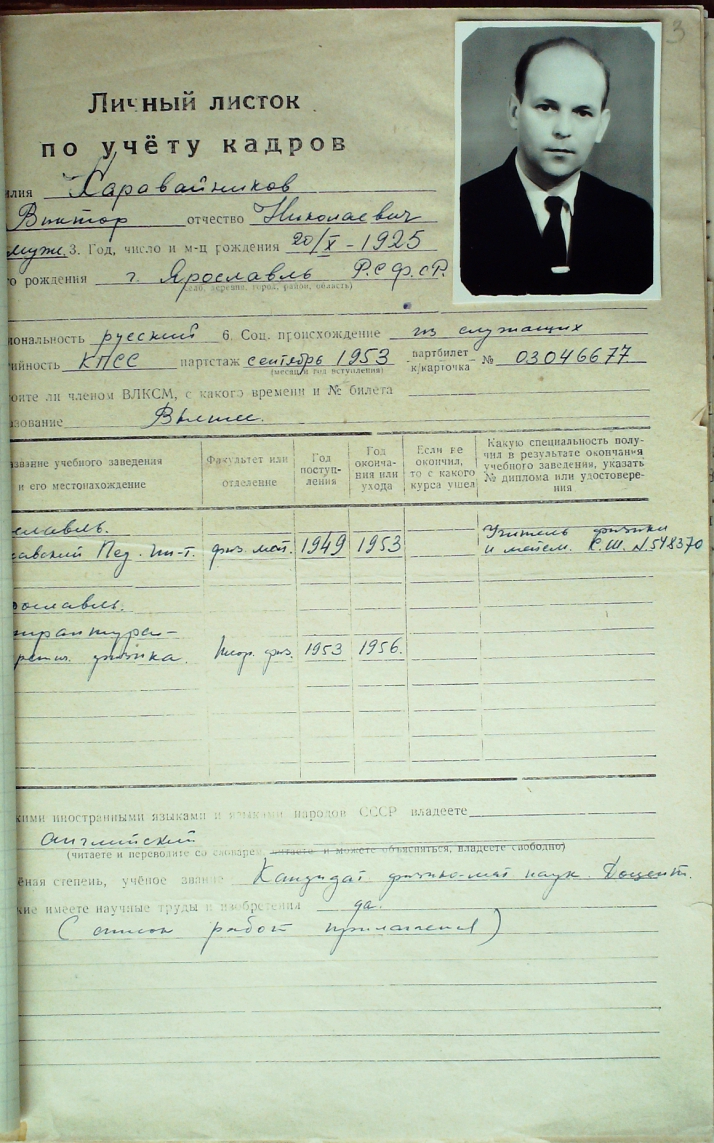 3
Личный листок
по учёту кадров
илия Каравайников
Виктор отчество Николаевич
муж. 3. Год, число и м-ц рождения 20/X - 1925
о рождения г. Ярославль Р.С.Ф.С.Р.
(село, деревня, город, район, область)
иональность русский 6. Соц. происхождение из служащих
ийность КПСС партстаж сентябрь 1953 партбилет к/карточка № 03046677
(месяц и год вступления)
оите ли членом ВЛКСМ, с какого времени и № билета
зование Высшее.
азвание учебного заведения и его местонахождение Факультет или отделение Год поступ-ления Год оконча-ния или ухода Если не окончил, то с какого курса ушел Какую специальность полу-чил в результате окончания учебного заведения, указать № диплома или удостовере-ния
ославль.
авский Пед. Ин-т. физ. мат. 1949 1953 Учитель физики
и матем. № 548370
рославль.
ирантура-
физика. теор. физ. 1953 1956.
кими иностранными языками и языками народов СССР владеете
английский
(читаете и переводите со словарем, читаете и можете объясняться, владеете свободно)
ёная степень, учёное звание Кандидат физико-мат наук. Доцент.
кие имеете научные труды и изобретения да.
(список работ прилагается)